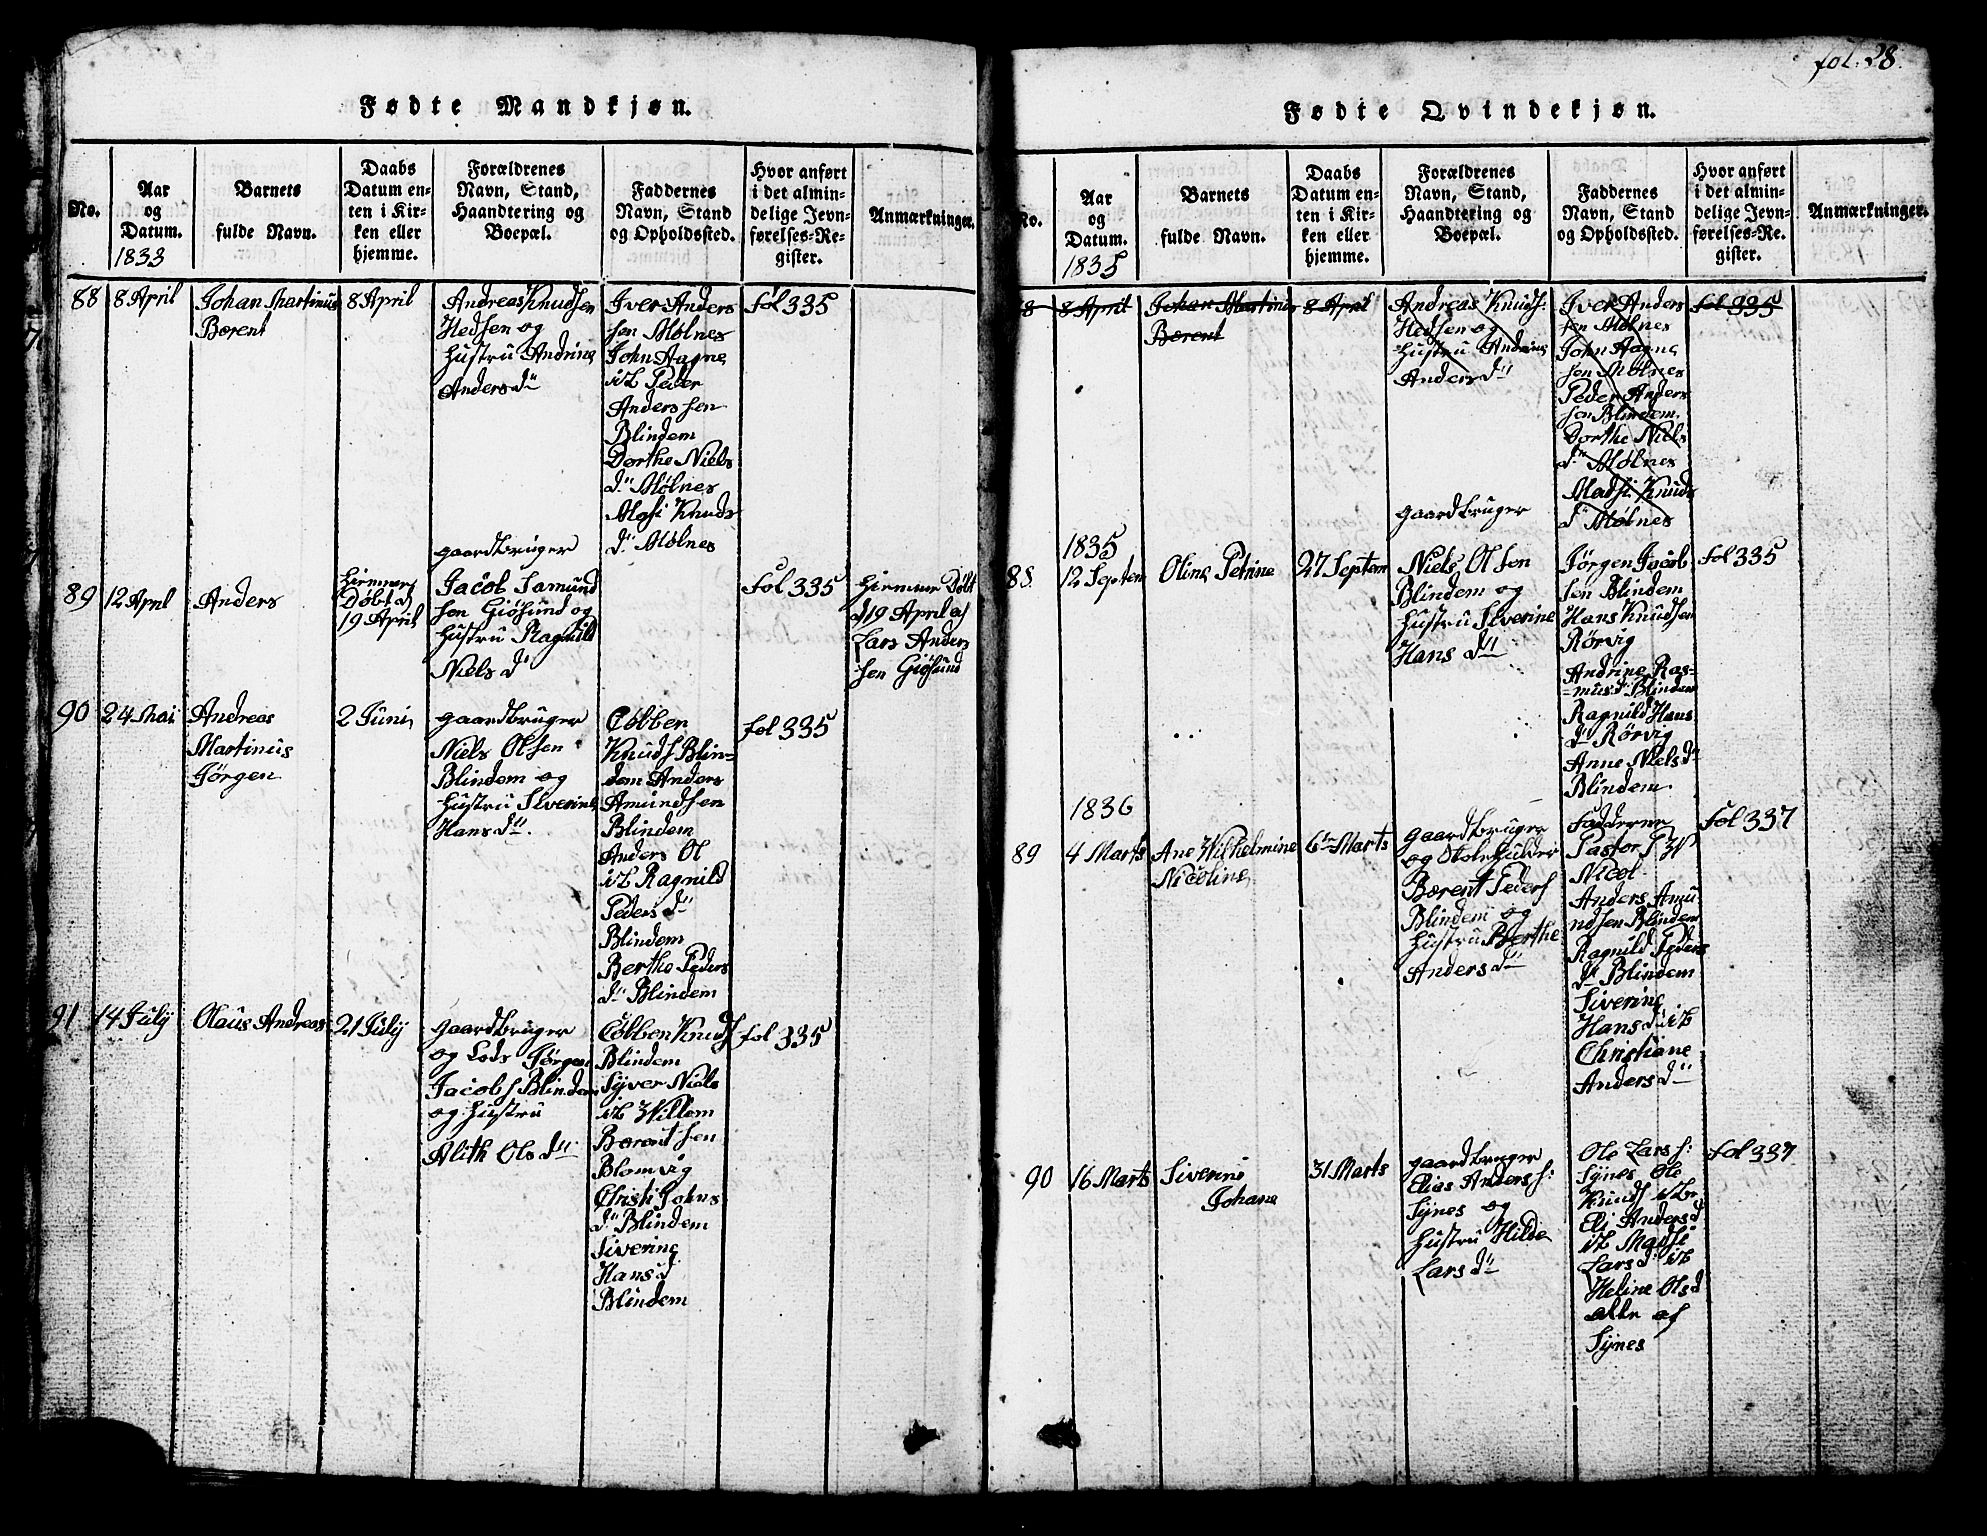 fol: 28.
Fødte Mandkjøn.
No.
Aar
og
Datum.
1833
Barnets
fulde Navn.
Daabs
Datum en-
ten i Kir-
ken eller
hjemme.
Forældrenes
Navn, Stand,
Haandtering og
Boepæl.
Faddernes
Navn, Stand
og Opholdssted.
Hvor anført
i det almin-
delige Jevn-
førelses-Re-
gister.
Anmærkninger.
88
8 April
Johan Martinus
Bærent
8 April
Andreas Knudsen
Hedsen og
Hustru Andrine
Anders dn
gaardbruger
Iver Anders
sen Mølnes
John Aagne
ib Peder
Anders sen
Blindem
Dorthe Niels
dn Mølnes
Knuds
dn Mølnes
fol 335
89
12 April
Anders
Hiemmed
Døbt d
19 April
Jacob Samund
sen Giøsund og
Hustru Ragnild
Niels d
fol 335
Hiemme Døbt
d 19 April af
Lars Anders
sen Giøsund
90
24 Mai
Andreas
Martinus
Jørgen
2 Juni
gaardbruger
Niels Olsen
Blindem og
Hustru Siverine
Hans dn.
Cøbben
Knuds Blin-
dem Anders
Amundsen
Blindem
Anders Ol
ib Ragnild
Peders dn
Blindem
Berthe Peders
dn Blindem
fol 335
91
14 July
Olaus Andreas
21 July
gaardbruger
og Lods Jørgen
Jacobs Blindem
og Hustru
Alith Ols dn
Cøbben Knuds
Blindem
Syver Niels
ib Willem
Bærentsen
Blomvig
Christi Johns
dn Blindem
Siverine
Hans d
Blindem
fol 335
Fødte Qvindekjøn.
No.
Aar
og
Datum.
1835
Barnets
fulde Navn.
Daabs
Datum en-
ten i Kir-
ken eller
hjemme.
Forældrenes
Navn, Stand,
Haandtering og
Boepæl.
Faddernes
Navn, Stand
og Opholdssted.
Hvor anført
i det almin-
delige Jevn-
førelses-Re-
gister.
Anmærkninger.
8
8 April
Johan Martinus
Bærent
8 April
Andreas Knuds:
Hedsen og
Hustru Andrine
Anders dn
Iver Anders
sen Mølnes
John Aagne
sen Mølnes
Peder Anders
sen Blindem
Dorthe Niels
dn Mølnes
Knuds
dn Mølnes
fol 335
1835
88
12 Septem
Oline Petrine
27 Septem
gaardbruger
Niels Olsen
Blindem og
Hustru Siverine
Hans dn
Jørgen Jacob
sen Blindem
Hans Knudsen
Rørvig
Andrine Ras-
mus d Blindem
Ragnild Hans
dn Rørvig
Anne Niels d
Blindem
fol 335
1836
89
4 Marts
Ane Wilhelmine
Nicoline
6te Marts
gaardbruger
og
Bærent Peders
Blindem og
Hustru Berthe
Anders dn
Fadderne
Pastor
Nicol
Anders Amu
ndsen Blindem
Ragnild Peders
dn Blindem
Siverine
Hans d ib
Christiane
Anders dn
fol 337
90
16 Marts
Siverine
Johane
31 Marts
gaardbruger
Elias Anders s:
Synes og
Hustru Hilde
Lars dn
Ole Lars s:
Synes Ole
Knuds ib
Eli Anders d
ib Madsi
Lars d: ib
Heline Ols d
alle af
Synes
fol 337